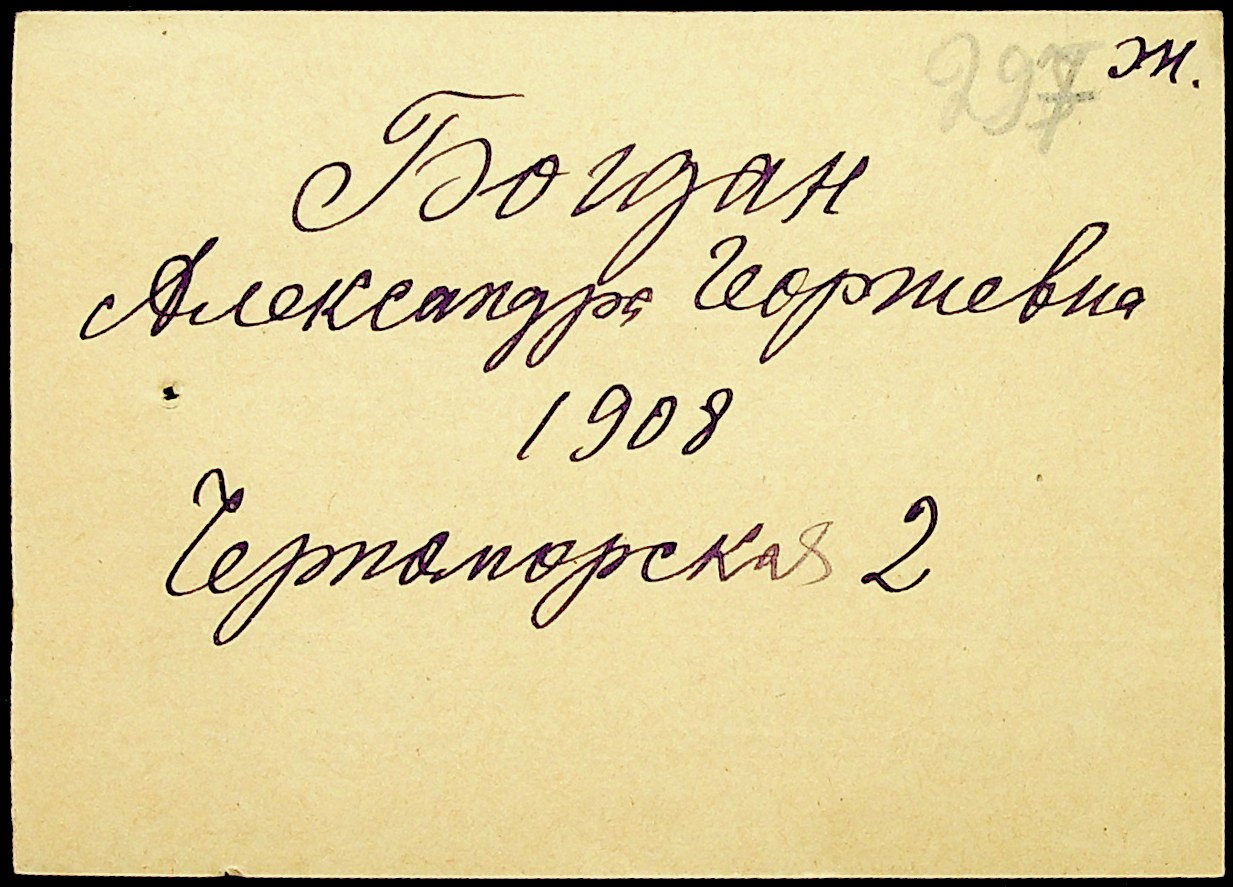 297 ж.
Богдан
Александра Георгиевна
1908
Черноморская 2